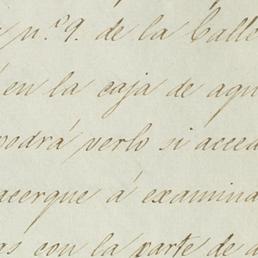 n.º 9. de la Calle
en la caja de aqu
podrá verlo si acced
acerque á examina
as con la parte de a